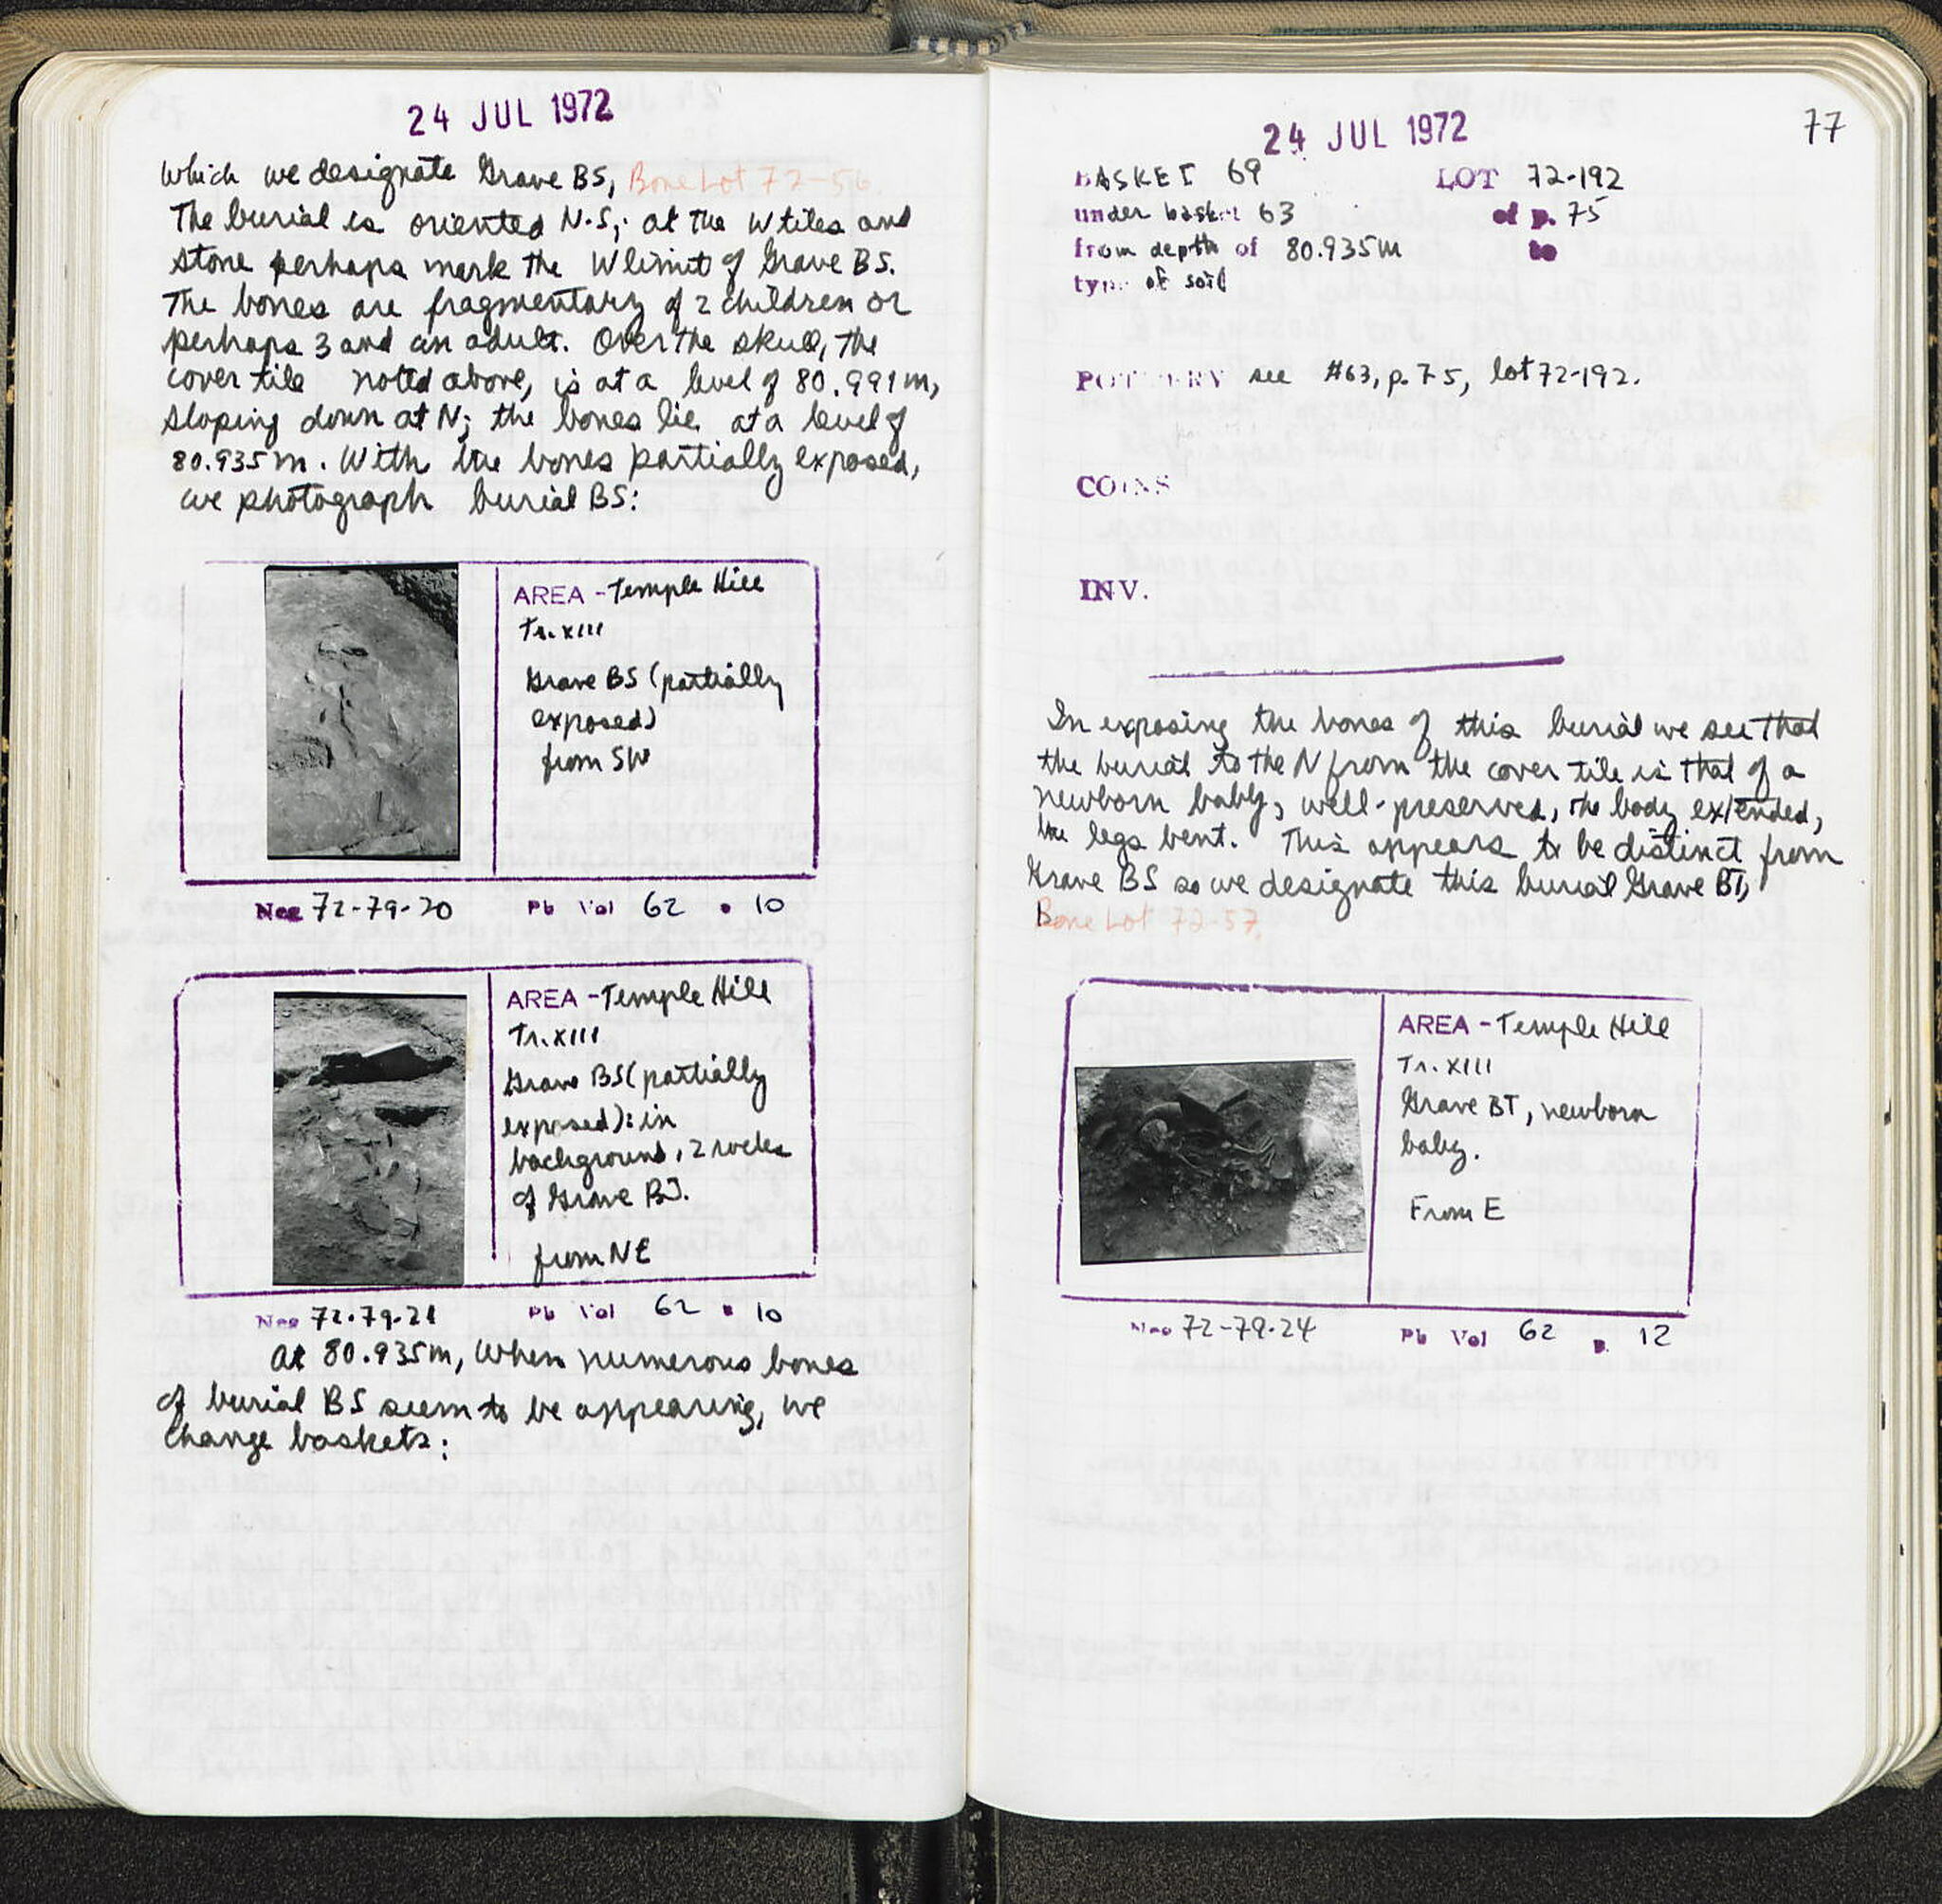 24 JUL 1972
which we designate Grave BS, Bone Lot 72-56
The burial is oriented N-S; at the W tiles and
stone perhaps mark the W limit of Grave BS.
The bones are fragmentary of 2 children or
perhaps 3 and an adult. Over the skull, the
cover tile noted above, is at a level of 80.991m,
sloping down at N; the bones lie at a level of
80.935m. With the bones partially exposed,
we photograph burial BS:
AREA - Temple Hill
Tr. XIII
Grave BS (partially
exposed)
from SW
Neg 72-79-20 Pb Vol 62 p 10
AREA - Temple Hill
Tr. XIII
Grave BS (partially
exposed): in
background, 2 rocks
of Grave
from NE
Neg 72-79-21 Pb Vol 62 p 10
At 80.935m, when numerous bones
of burial BS seem to be appearing, we
change baskets:
77
24 JUL 1972
BASKET 69 LOT 72-192
under basket 63 of p. 75
from depth of 80.935m to
type of soil
POTTERY see #63, p. 75, lot 72-192.
COINS
INV.
In exposing the bones of this burial we see that
the burial to the N from the cover tile is that of a
newborn baby, well-preserved, the body extended,
the legs bent. This appears to be distinct from
Grave BS so we designate this burial Grave BT,
Bone Lot 72-57.
AREA - Temple Hill
Tr. XIII
Grave BT, newborn
baby.
From E
Neg 72-79-24 Pb Vol 62 p. 12